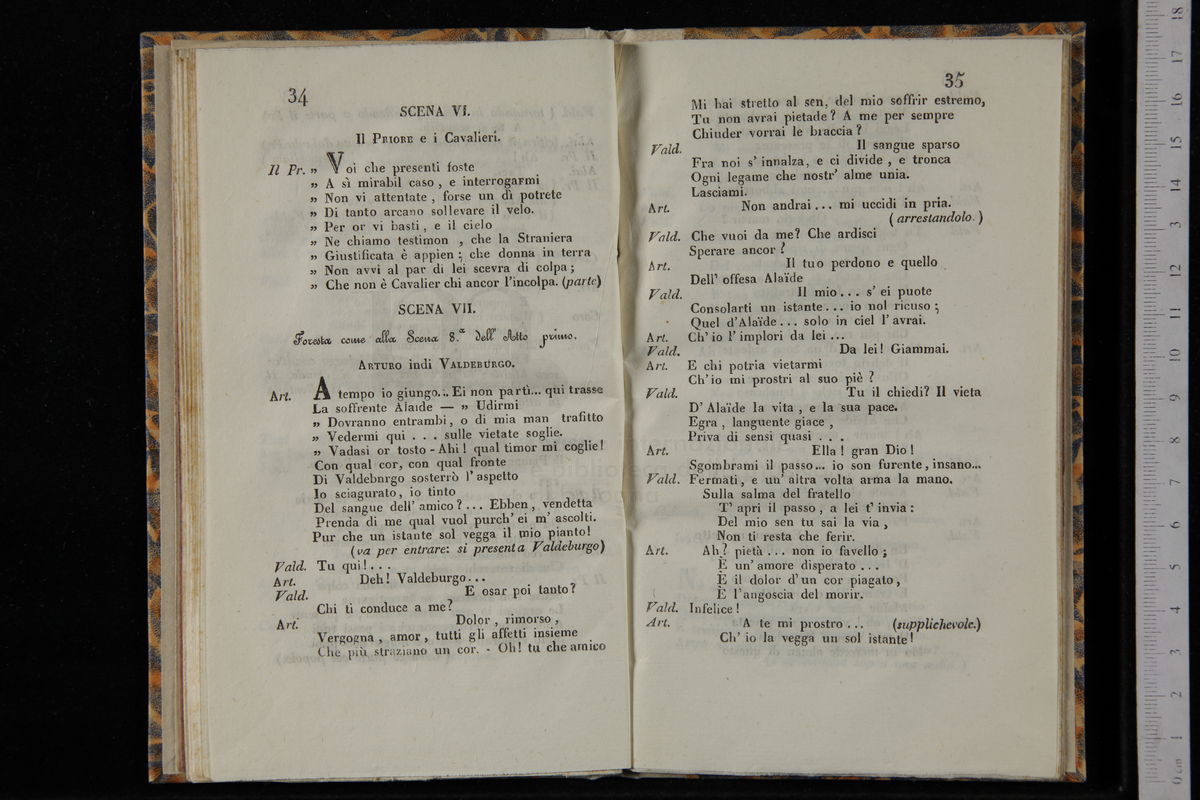 34
SCENA VI.
Il PRIORE e i Cavalieri.
Il Pr. „ Voi che presenti foste
„ A sì mirabil caso , e interrogarmi
„ Non vi attentate , forse un dì potrete
„ Di tanto arcano sollevare il velo.
„ Per or vi basti , e il cielo
„ Ne chiamo testimon , che la Straniera
„ Giustificata è appien ; che donna in terra
„ Non avvi al par di lei scevra di colpa ;
„ Che non è Cavalier chi ancor l'incolpa. (parte)
SCENA VII.
Foresta come alla Scena 8.a dell' Atto primo.
ARTURO indi VALDEBURGO.
Art. A tempo io giungo... Ei non partì... qui trasse
La soffrente Alaide — „ Udirmi
„ Dovranno entrambi, o di mia man trafitto
„ Vedermi qui . . . sulle vietate soglie.
„ Vadasi or tosto - Ahi ! qual timor mi coglie!
Con qual cor, con qual fronte
Di Valdebnrgo sosterrò l' aspetto
Io sciagurato, io tinto
Del sangue dell' amico ? ... Ebben, vendetta
Prenda di me qual vuol purch' ei m' ascolti.
Pur che un istante sol vegga il mio pianto!
(va per entrare: si presenta Valdeburgo)
Vald. Tu qui! . . .
Art. Deh! Valdeburgo...
Vald. E osar poi tanto?
Chi ti conduce a me?
Art. Dolor , rimorso ,
Vergogna , amor , tutti gli affetti insieme
Che più straziano un cor. - Oh! tu che amico
35
Mi hai stretto al sen, del mio soffrir estremo,
Tu non avrai pietade? A me per sempre
Chiuder vorrai le braccia ?
Vald. Il sangue sparso
Fra noi s' innalza, e ci divide , e tronca
Ogni legame che nostr' alme unia.
Lasciami.
Art. Non andrai... mi uccidi in pria.
( arrestandolo. )
Vald. Che vuoi da me? Che ardisci
Sperare ancor ?
Art. Il tuo perdono e quello
Dell' offesa Alaïde
Vald. Il mio... s' ei puote
Consolarti un istante... io nol ricuso ;
Quel d'Alaïde... solo in ciel l' avrai.
Art. Ch' io l' implori da lei ...
Vald. Da lei! Giammai.
Art. E chi potria vietarmi
Ch'io mi prostri al suo piè ?
Vald. Tu il chiedi? Il vieta
D' Alaïde la vita , e la sua pace.
Egra , languente giace ,
Priva di sensi quasi . . .
Art. Ella ! gran Dio !
Sgombrami il passo... io son furente, insano...
Vald. Fermati, e un' altra volta arma la mano.
Sulla salma del fratello
T' apri il passo , a lei t' invia :
Del mio sen tu sai la via ,
Non ti resta che ferir.
Art. Ah? pietà ... non io favello ;
È un' amore disperato ...
È il dolor d'un cor piagato,
È l'angoscia del morir.
Vald. Infelice !
Art. A te mi prostro ... (supplichevole.)
Ch' io la vegga un sol istante!